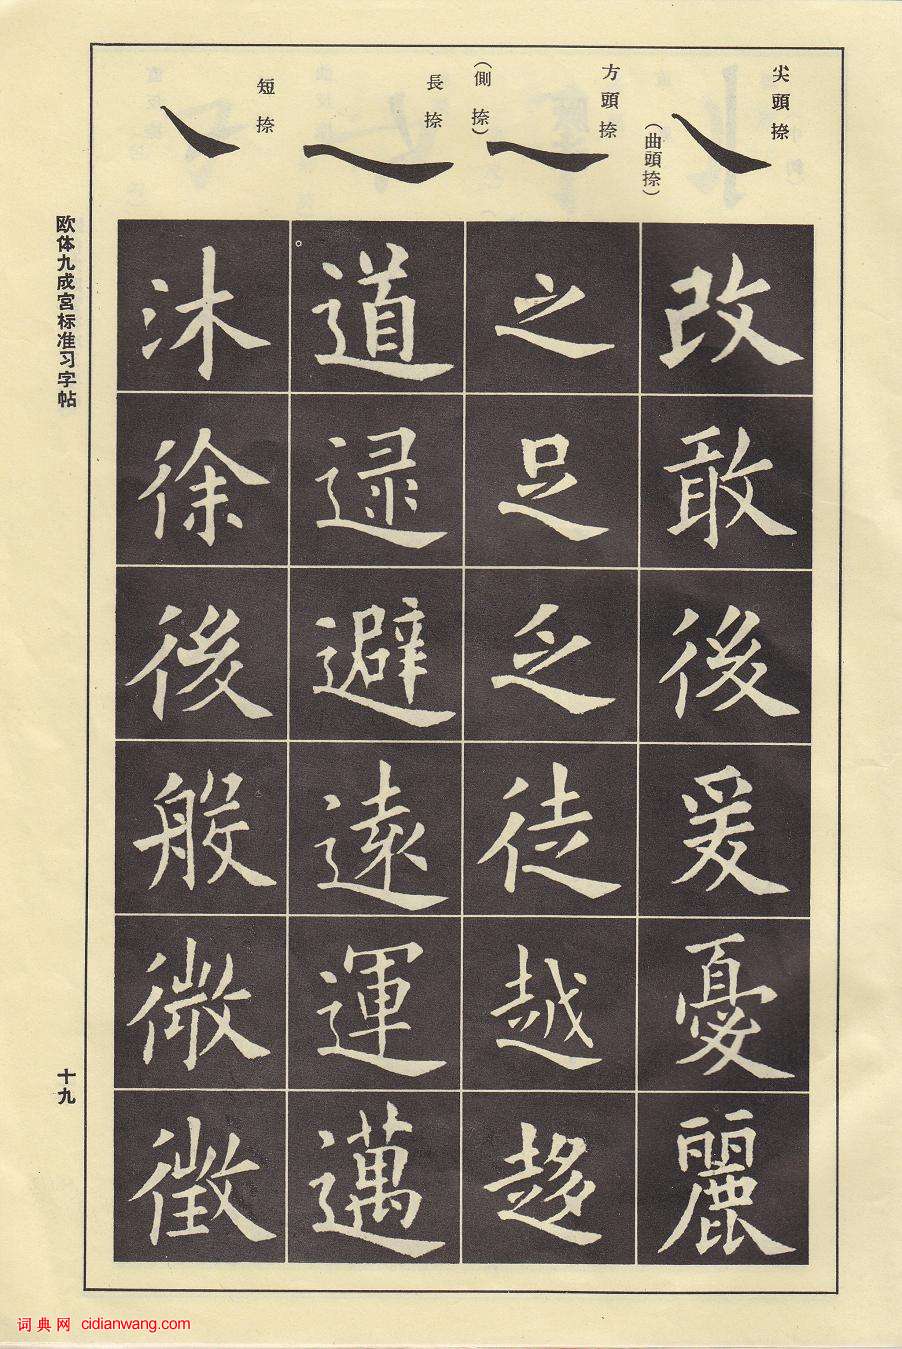 尖頭捺
方頭捺
（曲頭捺）
長捺
（側捺）
短捺
改敢後爰憂麗
之足乏徒越趍
道逯避遠運邁
沐徐後般微徵
欧体九成宫标准习字帖
十九
词典网 cidianwang.com